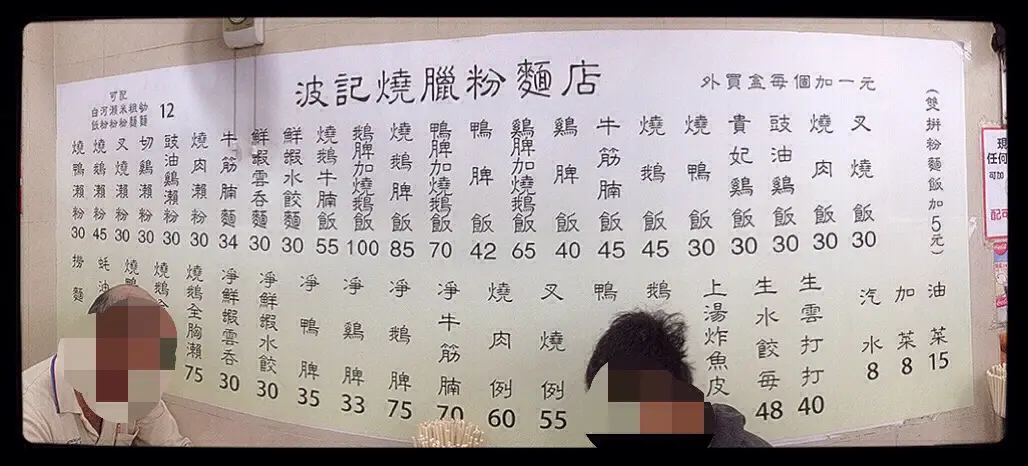 波記燒臘粉麵店
外買盒每個加一元
(雙拼粉麵飯加5元)
叉燒飯 30
燒肉飯 30
豉油鷄飯 30
貴妃鷄飯 30
燒鴨飯 30
燒鵝飯 45
牛筋腩飯 45
鷄脾飯 40
鷄脾加燒鵝飯 65
鴨脾飯 42
鴨脾加燒鵝飯 70
燒鵝脾飯 85
鵝脾加燒鵝飯 100
燒鵝牛腩飯 55
鮮蝦水餃麵 30
鮮蝦雲吞麵 30
牛筋腩麵 34
燒肉瀨粉 30
豉油鷄瀨粉 30
切鷄瀨粉 30
叉燒瀨粉 30
燒鵝瀨粉 45
燒鴨瀨粉 30
可配
白飯 河粉 瀨粉 米粉 粗麵 幼麵
12
油菜 15
加菜 8
汽水 8
生雲打打 40
生水餃每 48
上湯炸魚皮
鵝
鴨
叉燒例 55
燒肉例 60
淨牛筋腩 70
淨鵝脾 75
淨鷄脾 33
淨鴨脾 35
淨鮮蝦水餃 30
淨鮮蝦雲吞 30
燒鵝全胸瀨 75
燒鴨
蚝油
撈麵
現
任何
可加
配